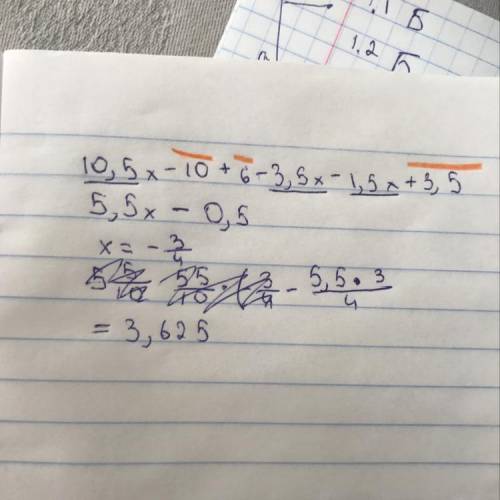 1.1 Б
1.2 Б
10,5x - 10 + 6 - 3,5x - 1,5x + 3,5
5,5x - 0,5
x = - 3/4
- 5,5 · 3/4
= 3,625